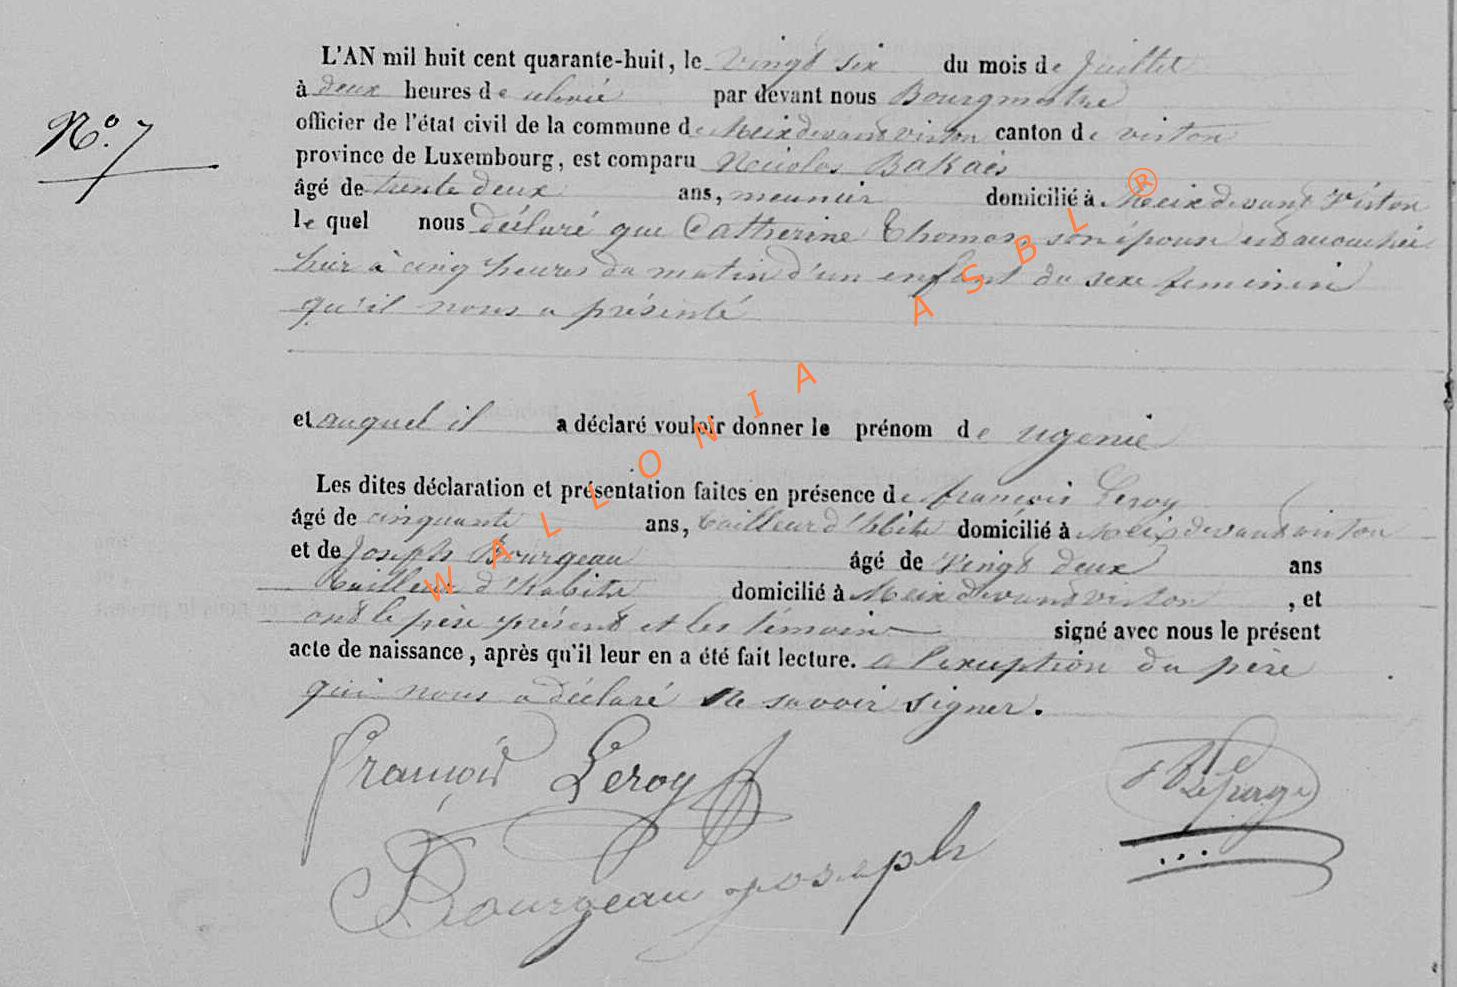 L'AN mil huit cent quarante-huit, le vingt six du mois de Juillet
à deux heures de relevée par devant nous Bourgmestre
N.° 7
officier de l'état civil de la commune de Meix devant virton canton de virton
province de Luxembourg, est comparu Nicolas Bakaès
âgé de trente deux ans, meunier domicilié à Meix devant Virton
le quel nous déclaré que Catherine Thomas son épouse est accouchée
hier à cinq heures du matin d'un enfant du sexe feminin
qu'il nous a présenté
et auquel il a déclaré vouloir donner le prénom de ugenie
Les dites déclaration et présentation faites en présence de françois Leroy
âgé de cinquante ans, tailleur d'hbits domicilié à Meix devant virton
et de Joseph Bourgeau âgé de vingt deux ans
tailleur d'habits domicilié à Meix devant virton , et
ont le père présent et les témoins signé avec nous le présent
acte de naissance, après qu'il leur en a été fait lecture. a l'exception du père
qui nous a déclaré ne savoir signer.
François Leroy
Lepage
Bourgeau joseph
WALLONIA ASBL ®